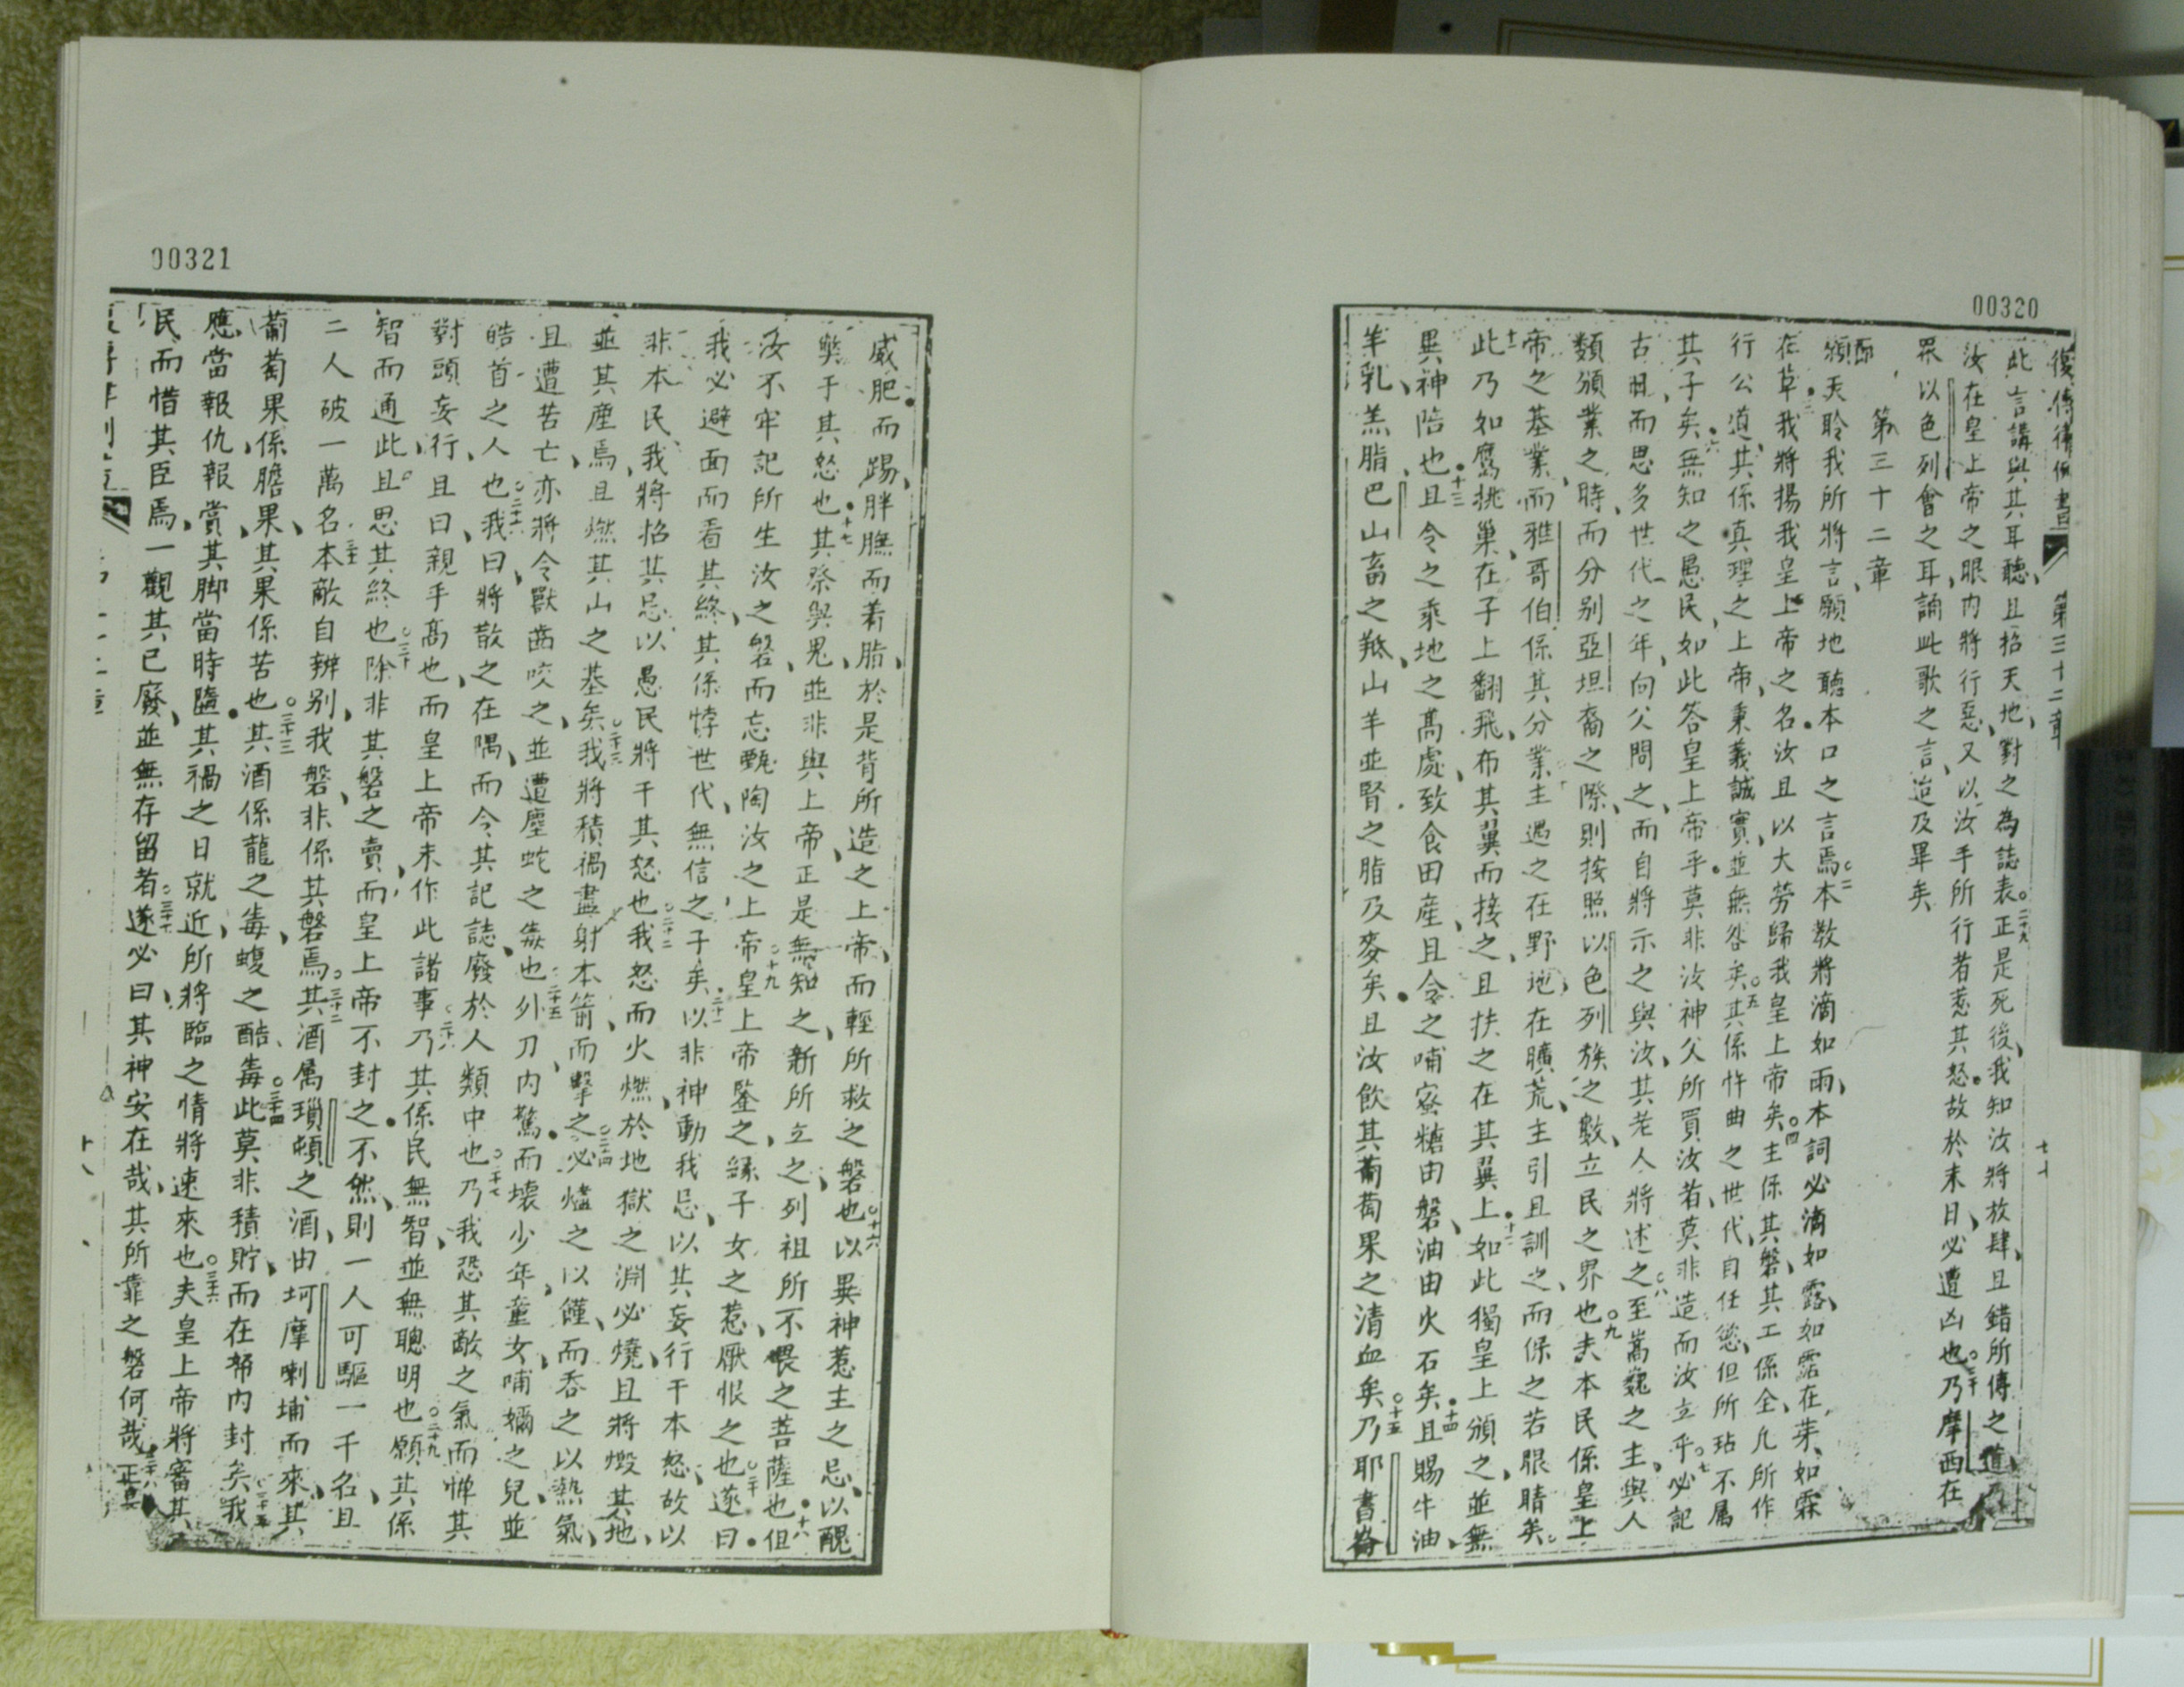 00320
復傳律例書 第三十二章
此言講與其耳聽、且招天地、對之為誌表、○二十九正是死後、我知汝將放肆、且錯所傳之道、乃
汝在皇上帝之眼內將行惡、又以汝手所行者惹其怒、故於末日、必遭凶也、○三十乃摩西在
眾以色列會之耳、誦此歌之言、迨及畢矣
第三十二章
節 傾天聆我所將言、願地聽本口之言焉、○二本教將滴如雨、本詞必滴如露、如霑在芽、如霖
在草、○三我將揚我皇上帝之名、汝且以大勞歸我皇上帝矣、○四主係其磐、其工係全、凡所作
行公道、其係真理之上帝、秉義誠實、並無咎矣、○五其係忤曲之世代、自任慾、但所玷不屬
其子矣、○六無知之愚民、如此答皇上帝乎、莫非汝神父所買汝者、莫非造而汝立乎、○七必記
古日、而思多世代之年、向父問之、而自將示之與汝、其老人將述之、○八至嵩巍之主、與人
類頒業之時、而分別亞坦裔之際、則按照以色列族之數、立民之界也、○九夫本民係皇上
帝之基業、而雅哥伯係其分業、十主遇之在野地、在曠荒、主引且訓之、而保之若眼睛矣、
十一此乃如鷹挑巢、在子上翻飛、布其翼而接之、且扶之在其翼上、○十二如此獨皇上頒之、並無
異神陪也、○十三且令之乘地之高處、致食田產、且令之哺蜜糖由磐、油由火石矣、○十四且賜牛油、
羊乳、羔脂、巴山畜之羝、山羊並腎之脂及麥矣、且汝飲其葡萄果之清血矣、○十五乃耶書崙
00321
威肥而踢、胖膴而着脂、於是背所造之上帝、而輕所救之磐也、○十六以異神惹主之忌、以醜
弊于其怒也、○十七其祭與鬼、並非與上帝、正是無知之、新所立之、列祖所不畏之菩薩也、○十八但
汝不牢記所生汝之磐、而忘甄陶汝之上帝、○十九皇上帝鑒之、緣子女之惹、厭恨之也、○二十遂曰、
我必避面而看其終、其係悖世代、無信之子矣、○二十一以非神動我忌、以其妄行干本怒、故以
非本民、我將招其忌、以愚民將干其怒也、○二十二我怒而火燃於地獄之淵、必燒、且將燬其地、
並其產焉、且燃其山之基矣、○二十三我將積禍、盡射本箭、而擊之、○二十四必燼之以饉、而吞之以熱氣、
且遭苦亡、亦將令獸齒咬之、並遭塵蛇之毒也、○二十五外刀內驚、而壞少年、童女、哺嬭之兒、並
皓首之人也、○二十六我曰、將散之在隅、而令其記誌、廢於人類中也、○二十七乃我恐其敵之氣而憚其
對頭妄行、且曰、親手高也、而皇上帝未作此諸事、○二十八乃其係民無智、並無聰明也、○二十九願其係
智而通此、且思其終也、○三十除非其磐之賣、而皇上帝不封之、不然、則一人可驅一千名、且
二人破一萬名、三十一本敵自辨別、我磐非係其磐焉、○三十二其酒屬瑣頓之酒、由坷摩喇埔而來、其
葡萄果、係膽果、其果係苦也、○三十三其酒係龍之毒、蝮之酷毒、○三十四此莫非積貯、而在帑內封矣、○三十五我
應當報仇報賞、其脚當時隨、其禍之日就近、所將臨之情將速來也、○三十六夫皇上帝將審其
民而惜其臣焉、一觀其已廢、並無存留者、○三十七遂必曰、其神安在哉、其所靠之磐何哉、○三十八正是
十八